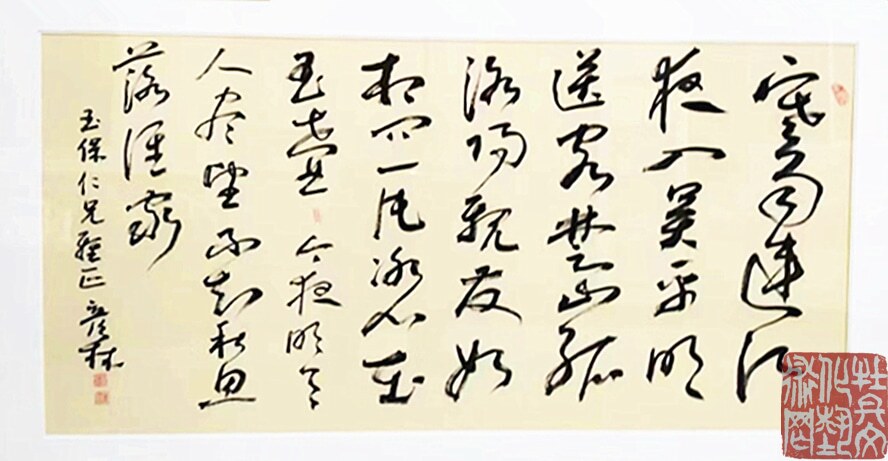 寒雨連江
夜入吳平明
送客楚山孤
洛陽親友如
相問一片冰心在
玉壺 今夜明月
人盡望不知秋思
落誰家
玉保仁兄雅正